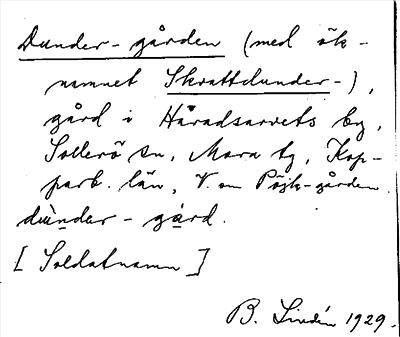 Dunder-gården (med ök-
namnet Skrattdunder-),
gård i Häradsarvets by,
Sollerö sn, Mora tg, Kop-
parb. län, V. om Pöjk-gården.
dùndar-gård.
[Soldatnamn]
B. Lindén 1929.